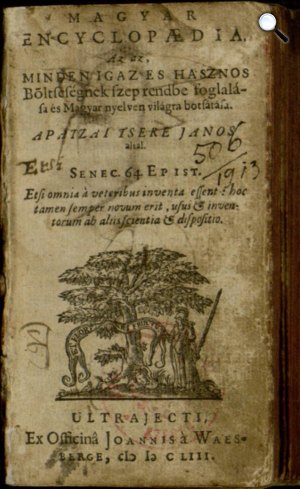 MAGYAR
ENCYCLOPÆDIA,
Az az,
MINDEN IGAZ ES HASZNOS
Bőltseségnek szep rendbe foglalá-
sa és Magyar nyelven világra botsátása.
APATZAI TSERE JANOS
által.
506
/1913
SENEC. 64 EPIST.
Etsi omnia à veteribus inventa essent: hoc
tamen semper novum erit, usus & inven-
torum ab aliis scientia & dispositio.
ULTRAJECTI,
Ex Officinâ JOANNIS à WAES-
BERGE, cIↄ Iↄ C LIII.